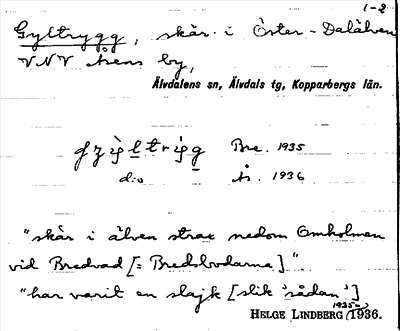 1-2
Gyltrygg, skär i Öster-Dalälven
VNV Åsens by,
Älvdalens sn, Älvdals tg, Kopparbergs län.
Bre. 1935
d:o Ås. 1936
"skär i älven strax nedom Omholmen
vid Bredvad [= Bredbodarna]".
"har varit en slajk [slik 'sådan']
1935-
HELGE LINDBERG 1936.